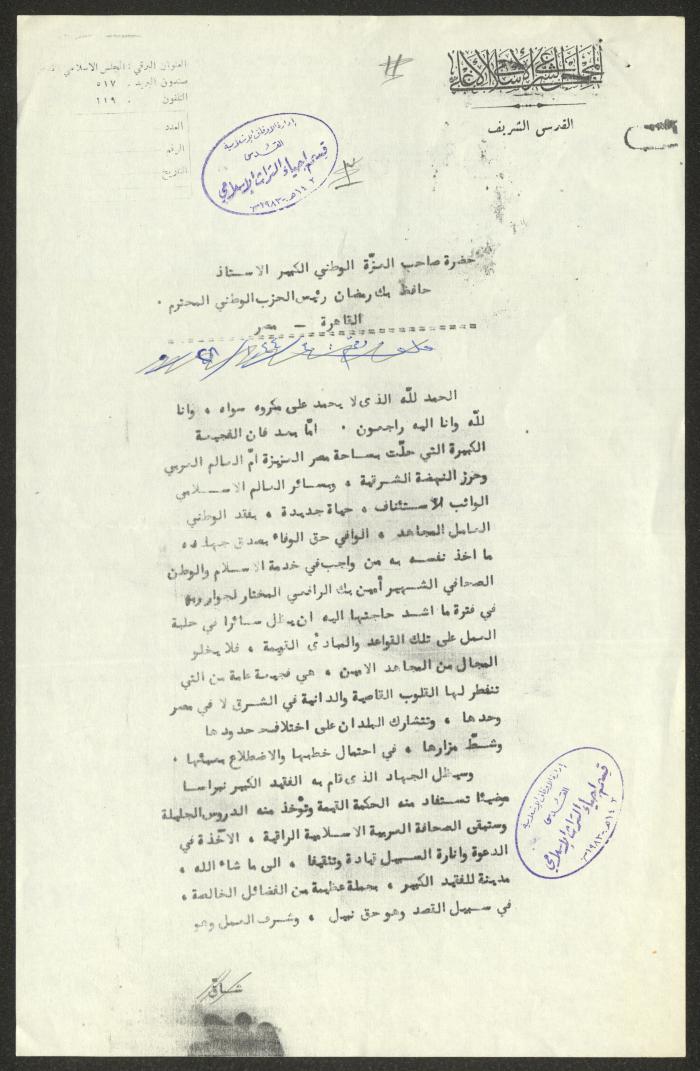 المجلس الشرعي الإسلامي الأعلى
القدس الشريف
العنوان البرقي : المجلس الاسلامي
صندوق البريد . ٥١٧
التلفون . ٢١٩
العدد
الرقم
التاريخ
إدارة الأوقاف الإسلامية
القدس
قسم إحياء التراث الإسلامي
١٤٠٢هـ-١٩٨٣م
حضرة صاحب العزّة الوطني الكبير الاستاذ
حافظ بك رمضان رئيس الحزب الوطني المحترم .
القاهرة - مصر
الحمد للّه الذى لا يحمد على مكروه سواه ، وانا
للّه وانا اليه راجعون . امّا بعد فان الفجيعة
الكبيرة التي حلّت بساحة مصر العزيزة امّ العالم العربي
وحرز النهضة الشرقية ، وبسائر العالم الاسلامي
الواثب لاستئناف ، حياة جديدة ، بفقد الوطني
العامل المجاهد ، الوافي حق الوفاء بصدق جهاده
ما اخذ نفسه به من واجب في خدمة الاسلام والوطن
الصحافي الشهير أمين بك الرافعي المختار لجوار ربه
في فترة ما اشد حاجتها اليه ان يظل سائرا في حلبة
العمل على تلك القواعد والمبادئ القيمة ، فلا يخلو
المجال من المجاهد الامين ، هي فجيعة عامة من التي
تنفطر لها القلوب القاصية والدانية في الشرق لا في مصر
وحدها ، وتتشارك البلدان على اختلاف حدودها
وشطّ مزارها ، في احتمال خطبها والاضطلاع بعبئها .
وسيظل الجهاد الذى قام به الفقيد الكبير نبراسا
مضيئا تستفاد منه الحكمة القيمة وتؤخذ منه الدروس الجليلة
وستبقى الصحافة العربية الاسلامية الراقية ، الآخذة في
الدعوة وانارة السبيل قيادة وتثقيفا ، الى ما شاء الله ،
مدينة للفقيد الكبير ، بجملة عظيمة من الفضائل الخالصة ،
في سبيل القصد وهو حق نبيل ، وشرف العمل وهو
شاق
إدارة الأوقاف الإسلامية
القدس
قسم إحياء التراث الإسلامي
١٤٠٢هـ-١٩٨٣م